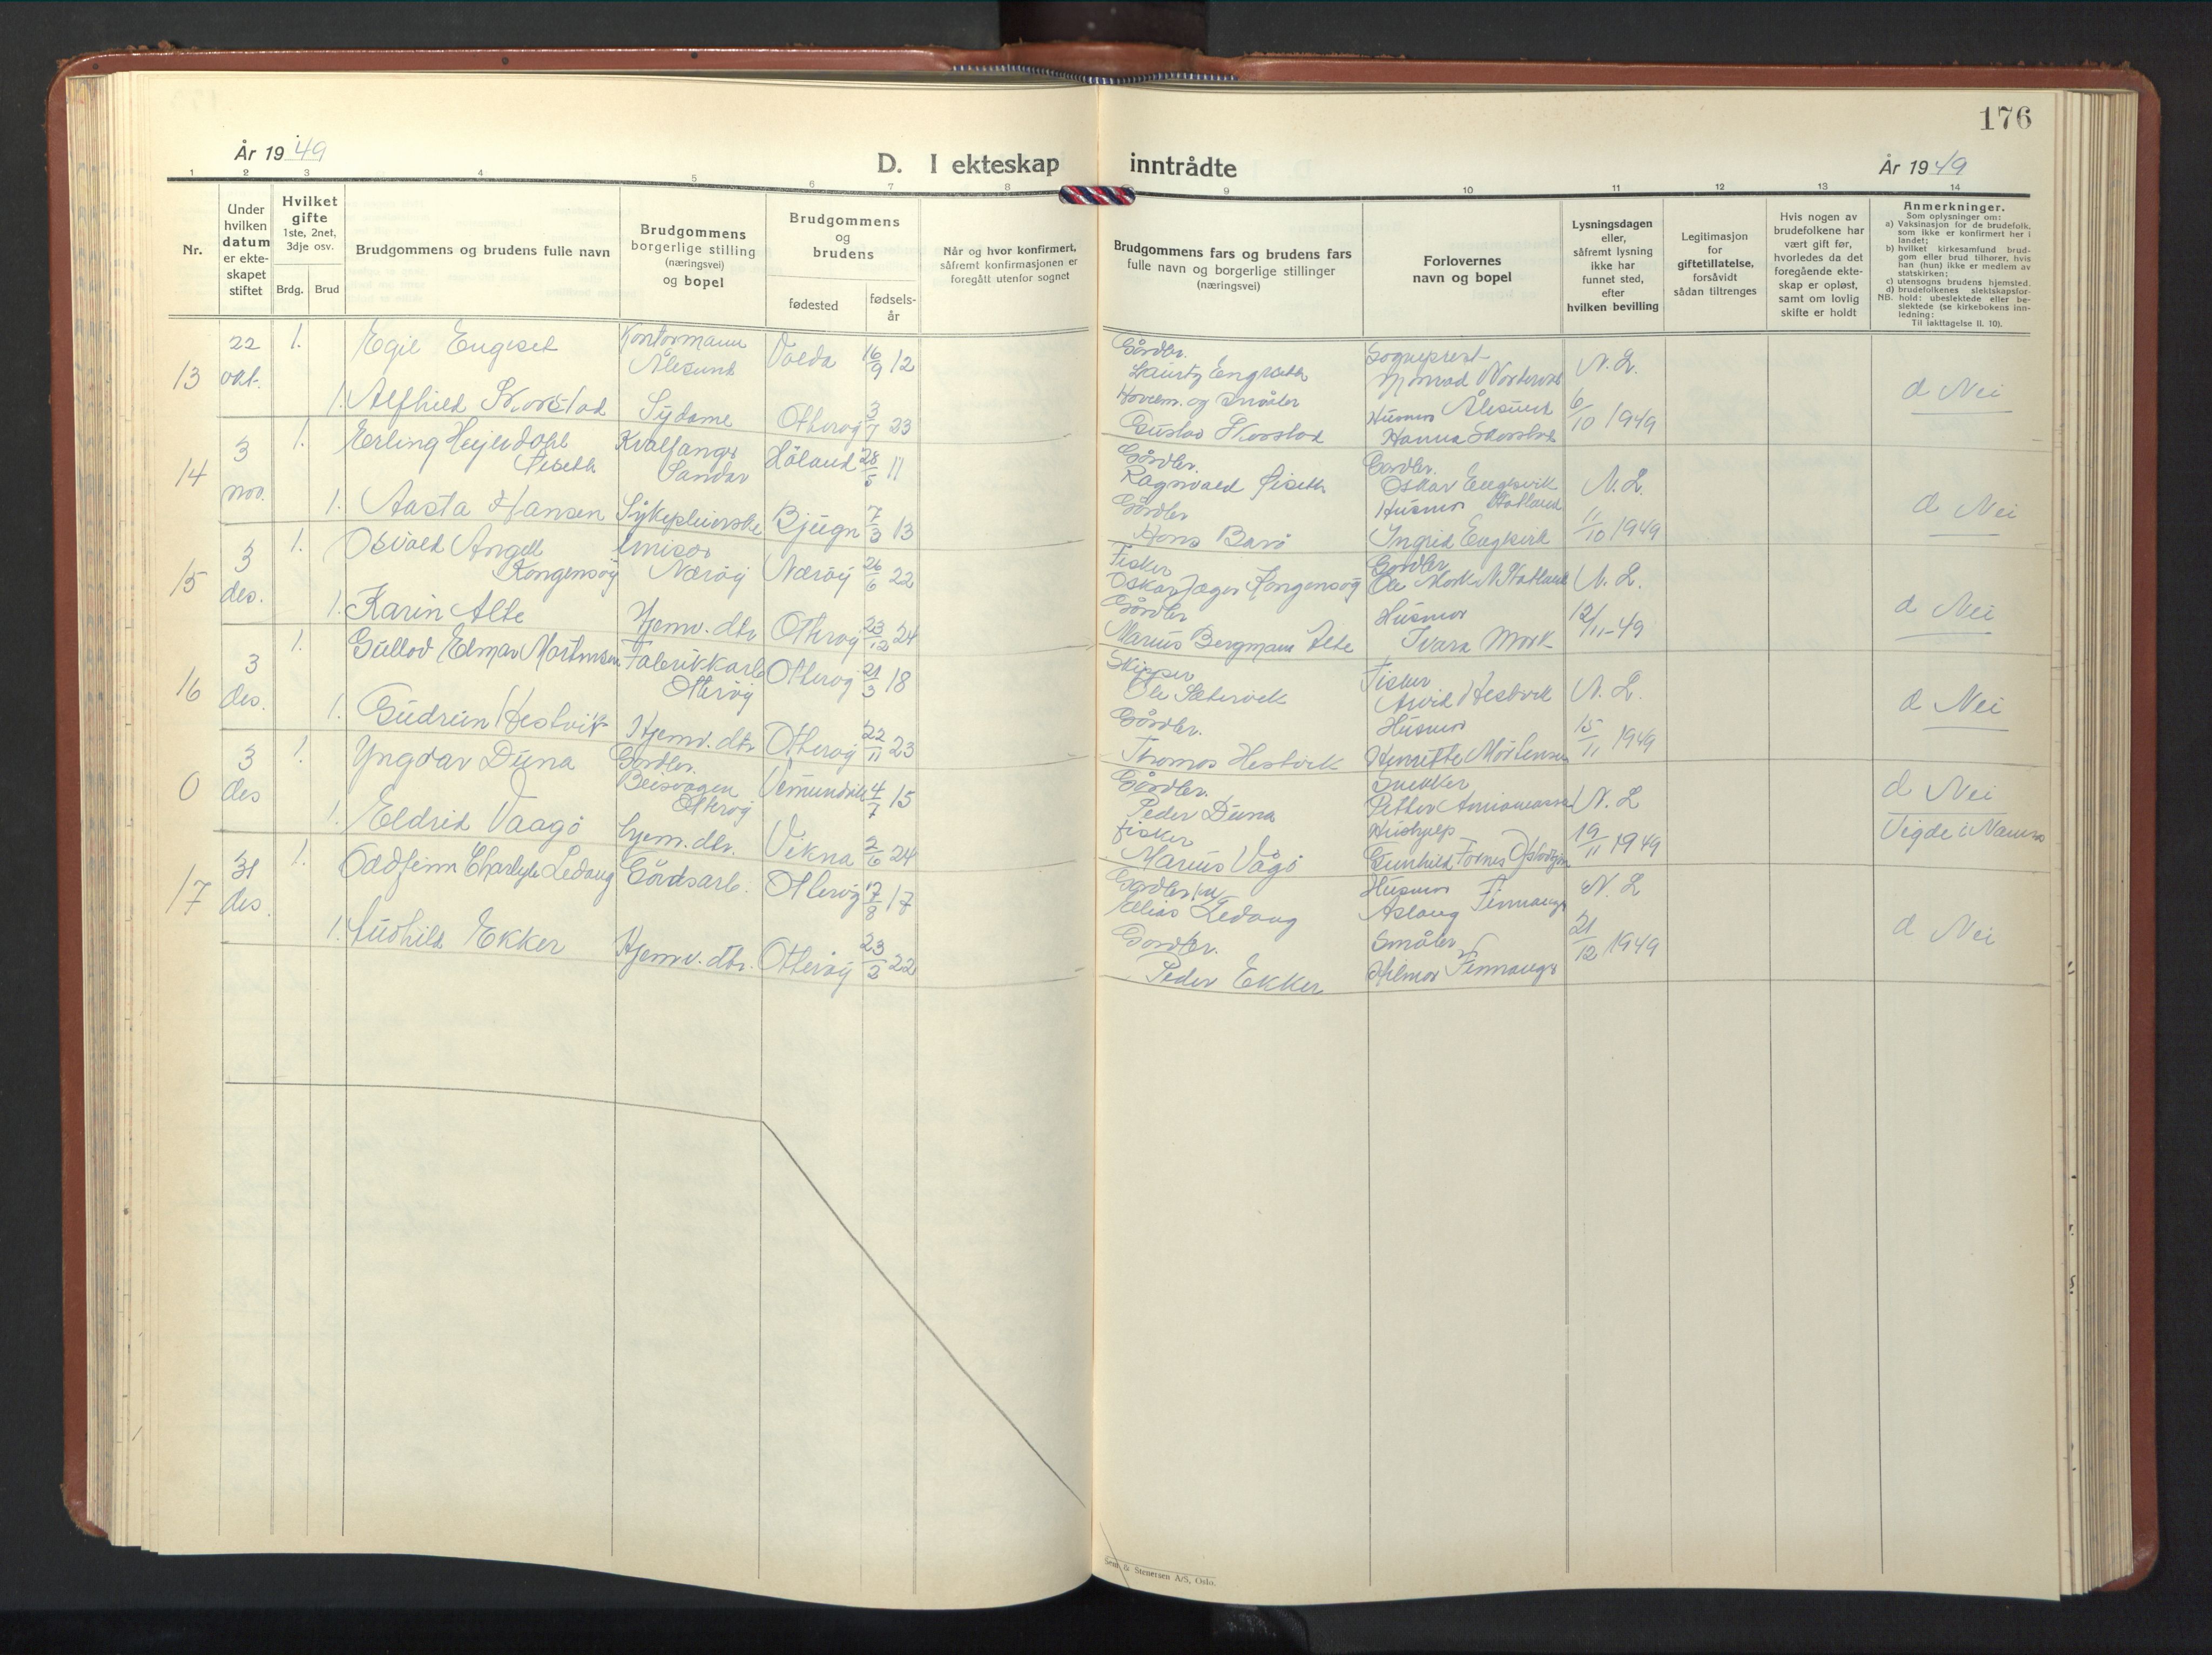 176
År 1949
D. I ekteskap inntrådte
År 1949
1 2 3 4 5 6 7 8 9 10 11 12 13 14
Nr.
Under hvilken datum er ekteskapet stiftet
Hvilket gifte 1ste, 2net, 3dje osv.
Brdg. Brud
Brudgommens og brudens fulle navn
Brudgommens borgerlige stilling (næringsvei) og bopel
Brudgommens og brudens
fødested
fødselsår
Når og hvor konfirmert, såfremt konfirmasjonen er foregått utenfor sognet
Brudgommens fars og brudens fars fulle navn og borgerlige stillinger (næringsvei)
Forlovernes navn og bopel
Lysningsdagen eller, såfremt lysning ikke har funnet sted, efter hvilken bevilling
Legitimasjon for giftetillatelse, forsåvidt sådan tiltrenges
Hvis nogen av brudefolkene har vært gift før, hvorledes da det foregående ekteskap er opløst, samt om lovlig skifte er holdt
Anmerkninger.
Som oplysninger om:
a) Vaksinasjon for de brudefolk, som ikke er konfirmert her i landet;
b) hvilket kirkesamfund brudgom eller brud tilhører, hvis han (hun) ikke er medlem av statskirken;
c) utensogns brudens hjemsted.
d) brudefolkenes slektskapsforhold: ubeslektede eller beslektede (se kirkebokens innledning:
NB.
Til iakttagelse II. 10).
13 22 okt. 1. Egil Engeset Kontormann Ålesund Volda 16/9 12 Gårdbr. Lauritz Engeseth Sogneprest Ålesund N. L.
1. Alfhild Skorstad Sydame Otterøy 3/7 23 Gustav Skorstad Husmor Hanna Skorstad 6/10 1949 d Nei
14 3 nov. 1. Erling Hejledahl Fiseth Kvalfanger Sandar Høland 28/5 11 Gårdbr. Ragnvald Fiseth Gårdbr. Oskar Engesvik Statland N. L.
1. Aasta Hansen Sykepleierske Bjugn 7/3 13 Gårdbr Hans Barø Husmor Ingrid Engesvik 11/10 1949 d Nei
15 3 des. 1. Osvald Angell Kongensøy Nærøy Nærøy 26/6 22 Fisker Oskar Jager Kongensøy Gårdbr Ole Mork Statland N. L.
1. Karin Alte Hjemv. dtr Otterøy 23/12 24 Gårdbr Marius Bergmann Alte Husmor Ivara Mork 12/11-49 d Nei
16 3 des. 1. Gullod Elmar Mortensen Fabrikkarb Otterøy Otterøy 21/3 18 Skipper Ole Sætervik Fisker Arvid Hestvik N. L.
1. Gudrun Hestvik Hjemv. dtr Otterøy 22/11 23 Gårdbr. Thomas Hestvik Husmor Henriette Mortensen 15/11 1949 d Nei
0 3 des 1. Yngvar Duna Gårdbr. Beisvågen Otterøy Vemundvik 4/7 15 Gårdbr. Peder Duna Snekker Petter N. L
1. Eldrid Vaagø hjem. dtr. Vikna 2/6 24 fisker Marius Vågø Hushjelp Gunhild Fornes 19/11 1949 d Nei Vigde i Namsos
17 31 des. 1. Oddfinn Ledang Gårdsarb. Otterøy 17/8 17 Gårdbr Elias Ledang Husmor Aslaug Finnanger N. L
1. Audhild Ekker Hjemv. dtr. Otterøy 23/3 22 Gårdbr. Peder Ekker Småbr Hilmar Finnanger 21/12 1949 d Nei
Sem & Stenersen A/S, Oslo.